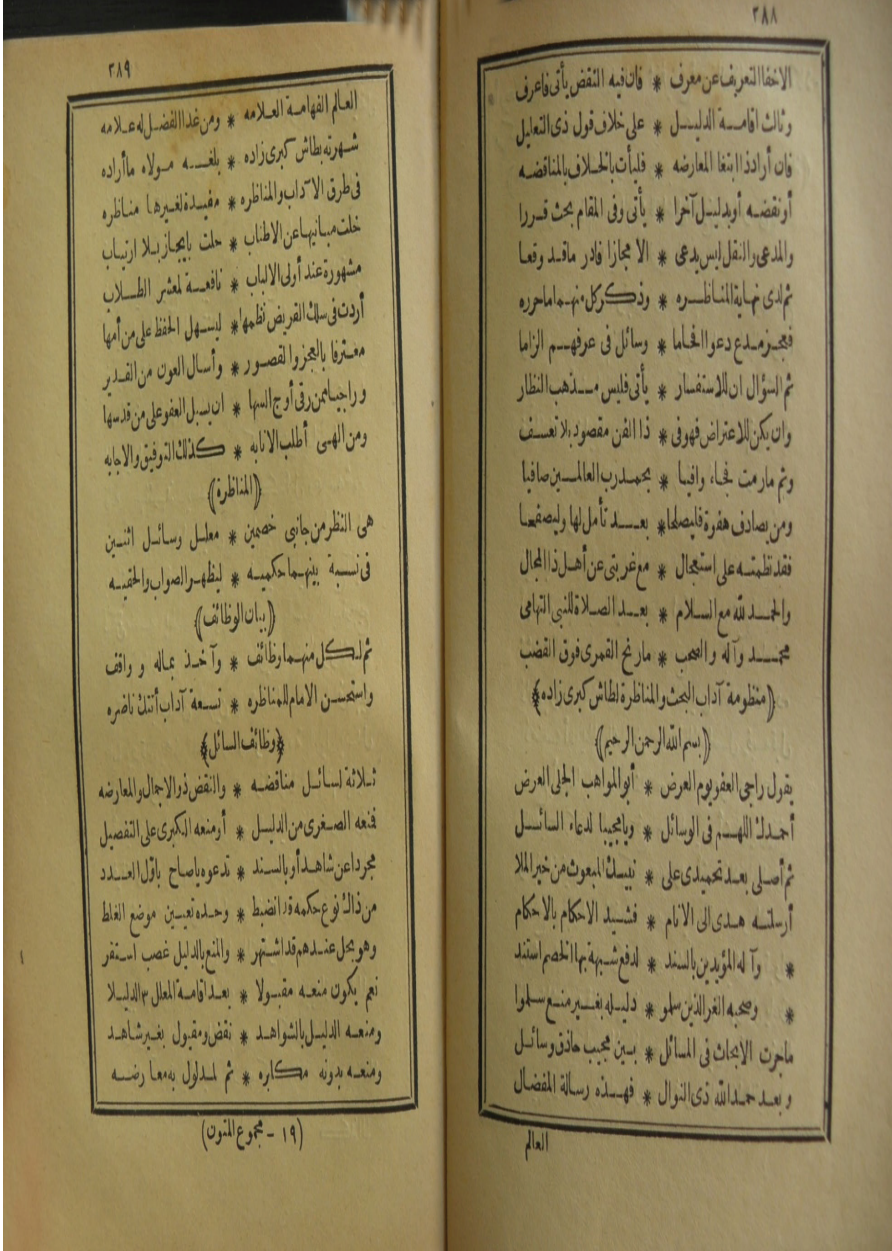 ٢٨٨
الاخفا التعريف عن معرف * فان فيه النقض يأتى فاعرف
وثالث اقامة الدليل * على خلاف قول ذى التعليل
فان أراد ذا ابتغا المعارضه * فليأت بالخلاف بالمناقضه
أو نقضه أو بدليل آخرا * يأتى وفى المقام بحث قررا
والمدعى والنقل ليس يدعى * الا مجازا فادر ماقد وقعا
ثم لدى نهاية المناظره * وذكر كل منهما ماحرره
فعجز مدع دعوا افحاما * وسائل فى عرفهم الزاما
ثم السؤال ان للاستفسار * يأتى فليس مذهب النظار
وان يكن للاعتراض فهو فى * ذا الفن مقصود بلا تعسف
وتم مارمت فجاء وافيا * بحمد رب العالمين صافيا
ومن يصادف هفوة فليصلحا * بعد تأمل لها وليصفحا
فقد نظمته على استعجال * مع غربتى عن أهل ذا المجال
والحمد لله مع السلام * بعد الصلاة للنبى التهامى
محمد وآله والصحب * مارنح القمرى فوق القضب
﴿منظومة آداب البحث والمناظرة لطاش كبرى زاده﴾
﴿بسم الله الرحمن الرحيم﴾
يقول راجى العفو يوم العرض * أبو المواهب الجلى العرض
أحمدك اللهم فى الوسائل * ويامجيبا لدعاء السائل
ثم أصلى بعد تحميدى على * نبيك المبعوث من خير الملا
أرسلته هدى الى الانام * فشيد الاحكام بالاحكام
* وآله المؤيدين بالسند * لدفع شبهة بها الخصم استند
* وصحبه الغر الذين سلمو * دليله بغير منع سلموا
ماجرت الابحاث فى المسائل * بين مجيب حاذق وسائل
وبعد حمد الله ذى النوال * فهذه رسالة المفضال
العالم
٢٨٩
العالم الفهامة العلامه * ومن غدا الفضل له علامه
شهرته بطاش كبرى زاده * بلغه مولاه ماأراده
فى طرق الآداب والمناظره * مفيدة لغيرها مناظره
خلت مبانيها عن الاطناب * حلت بايجاز بلا ارتياب
مشهورة عند أولى الالباب * نافعة لمعشر الطلاب
أردت فى سلك القريض نظمها * ليسهل الحفظ على من أمها
معترفا بالعجز والقصور * وأسأل العون من القدير
وراجيا ممن رقى أوج السها * ان يسبل العفو على من قد سها
ومن الهى أطلب الانابه * كذلك التوفيق والاجابه
﴿المناظرة﴾
هى النظر من جانبى خصمين * معلل وسائل اثنين
فى نسبة بينهما حكميه * ليظهر الصواب والحقيه
﴿بيان الوظائف﴾
ثم لكل منهما وظائف * وآخذ بماله وواقف
واستحسن الامام للمناظره * تسعة آداب أتتك ناضره
﴿وظائف السائل﴾
ثلاثة لسائل مناقضه * والنقض ذو الاجمال والمعارضه
فمنعه الصغرى من الدليل * أو منعه الكبرى على التفصيل
مجردا عن شاهد أو بالسند * تدعوه ياصاح بأول العدد
من ذاك نوع حكمه قد انضبط * وحده تعيين موضع الغلط
وهو بحل عندهم قد اشتهر * والمنع بالدليل غصب استقر
نعم يكون منعه مقبولا * بعد اقامة المعلل الدليلا
ومنعه الدليل بالشواهد * نقض ومقبول بغير شاهد
ومنعه بدونه مكابره * ثم لمدلول به معارضه
(١٩ - مجموع المتون)